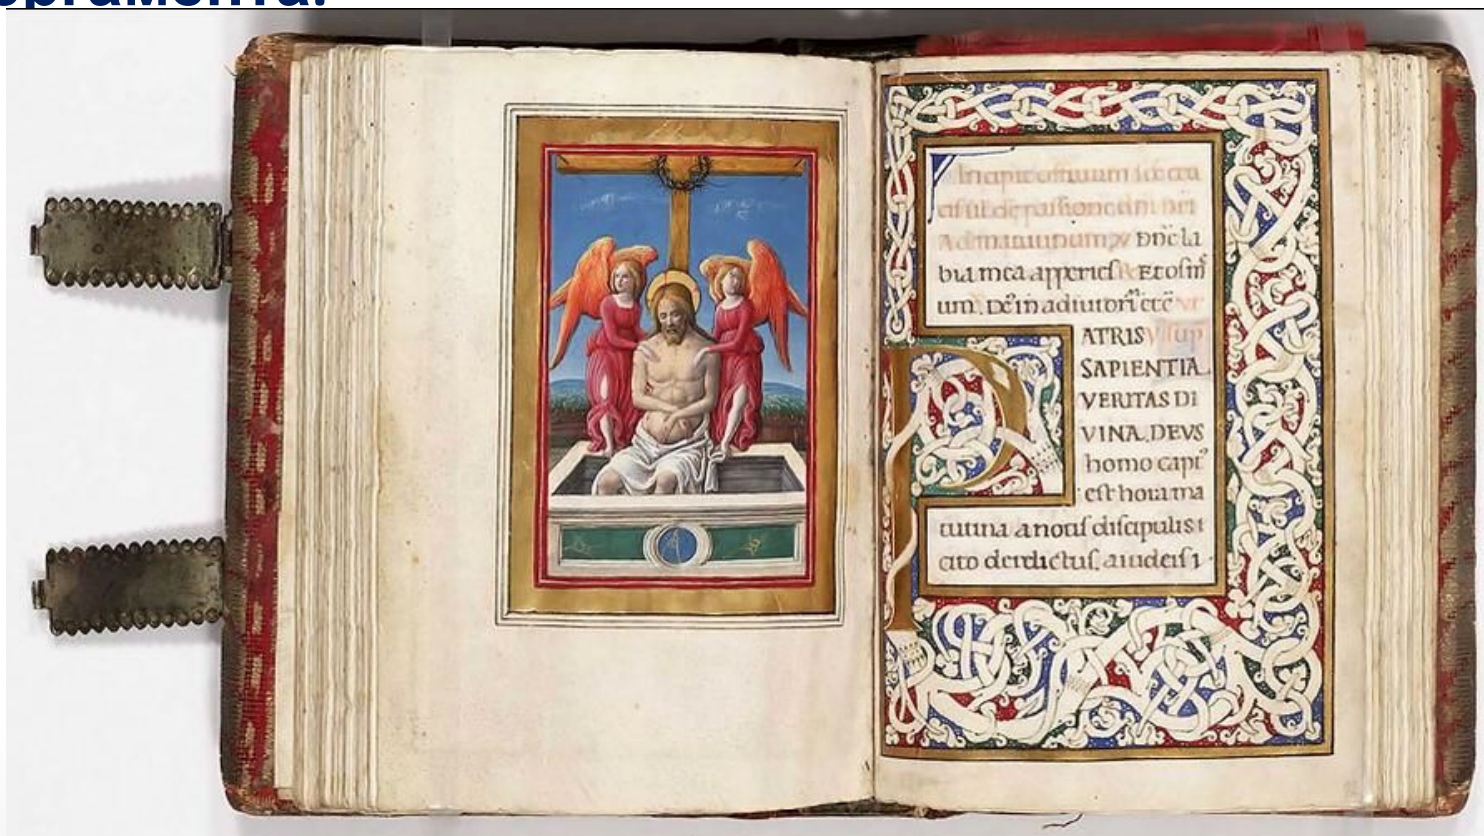 ергамента.
Incipit officium s͞c͞e cru
cis sil. de passione d͞n͞i n͞r͞i
Ad matutinum. ꝟ Dn̄e la
bia mea apperies. Et os m̄
um. De᷒ in adiutoriū etc̄
ATRIS
SAPIENTIA
VERITAS DI
VINA. DEVS
homo capt᷒
est hora ma
tutina a notis discipulis
cito derelictus, a iudeis